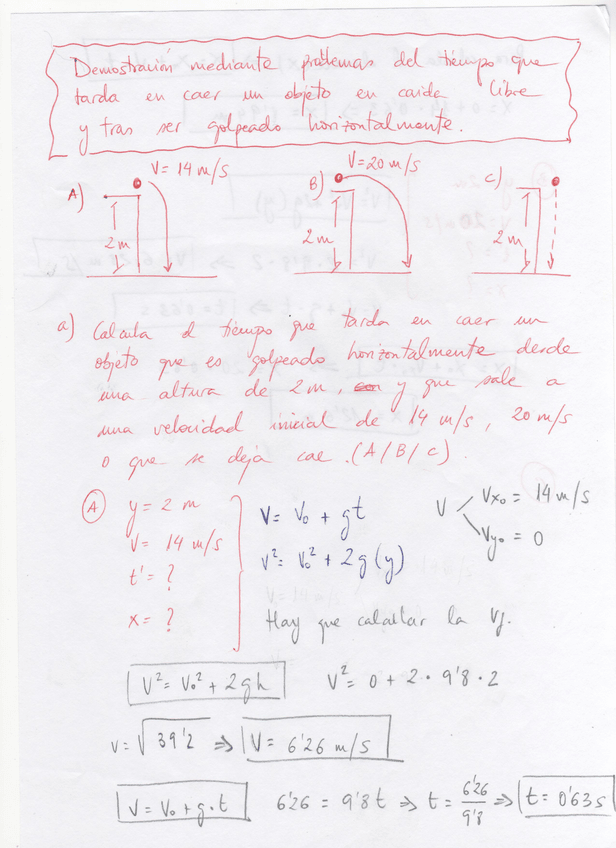 Demostración mediante problemas del tiempo que
tarda en caer un objeto en caida libre
y tras ser golpeado horizontalmente.
A) V = 14 m/s
2 m
B) V = 20 m/s
2 m
C)
2 m
a) Calcula el tiempo que tarda en caer un
objeto que es golpeado horizontalmente desde
una altura de 2 m, y que sale a
una velocidad inicial de 14 m/s, 20 m/s
o que se deja cae. (A/B/C)
A
y = 2 m
V = 14 m/s
t' = ?
x = ?
V = V₀ + gt
V² = V₀² + 2g(y)
V Vx₀ = 14 m/s
Vy₀ = 0
Hay que calcular la Vf.
V² = V₀² + 2gh V² = 0 + 2 · 9'8 · 2
V = √39'2 ⇒ V = 6'26 m/s
V = V₀ + g · t 6'26 = 9'8 t ⇒ t = 6'26/9'8 ⇒ t = 0'63 s